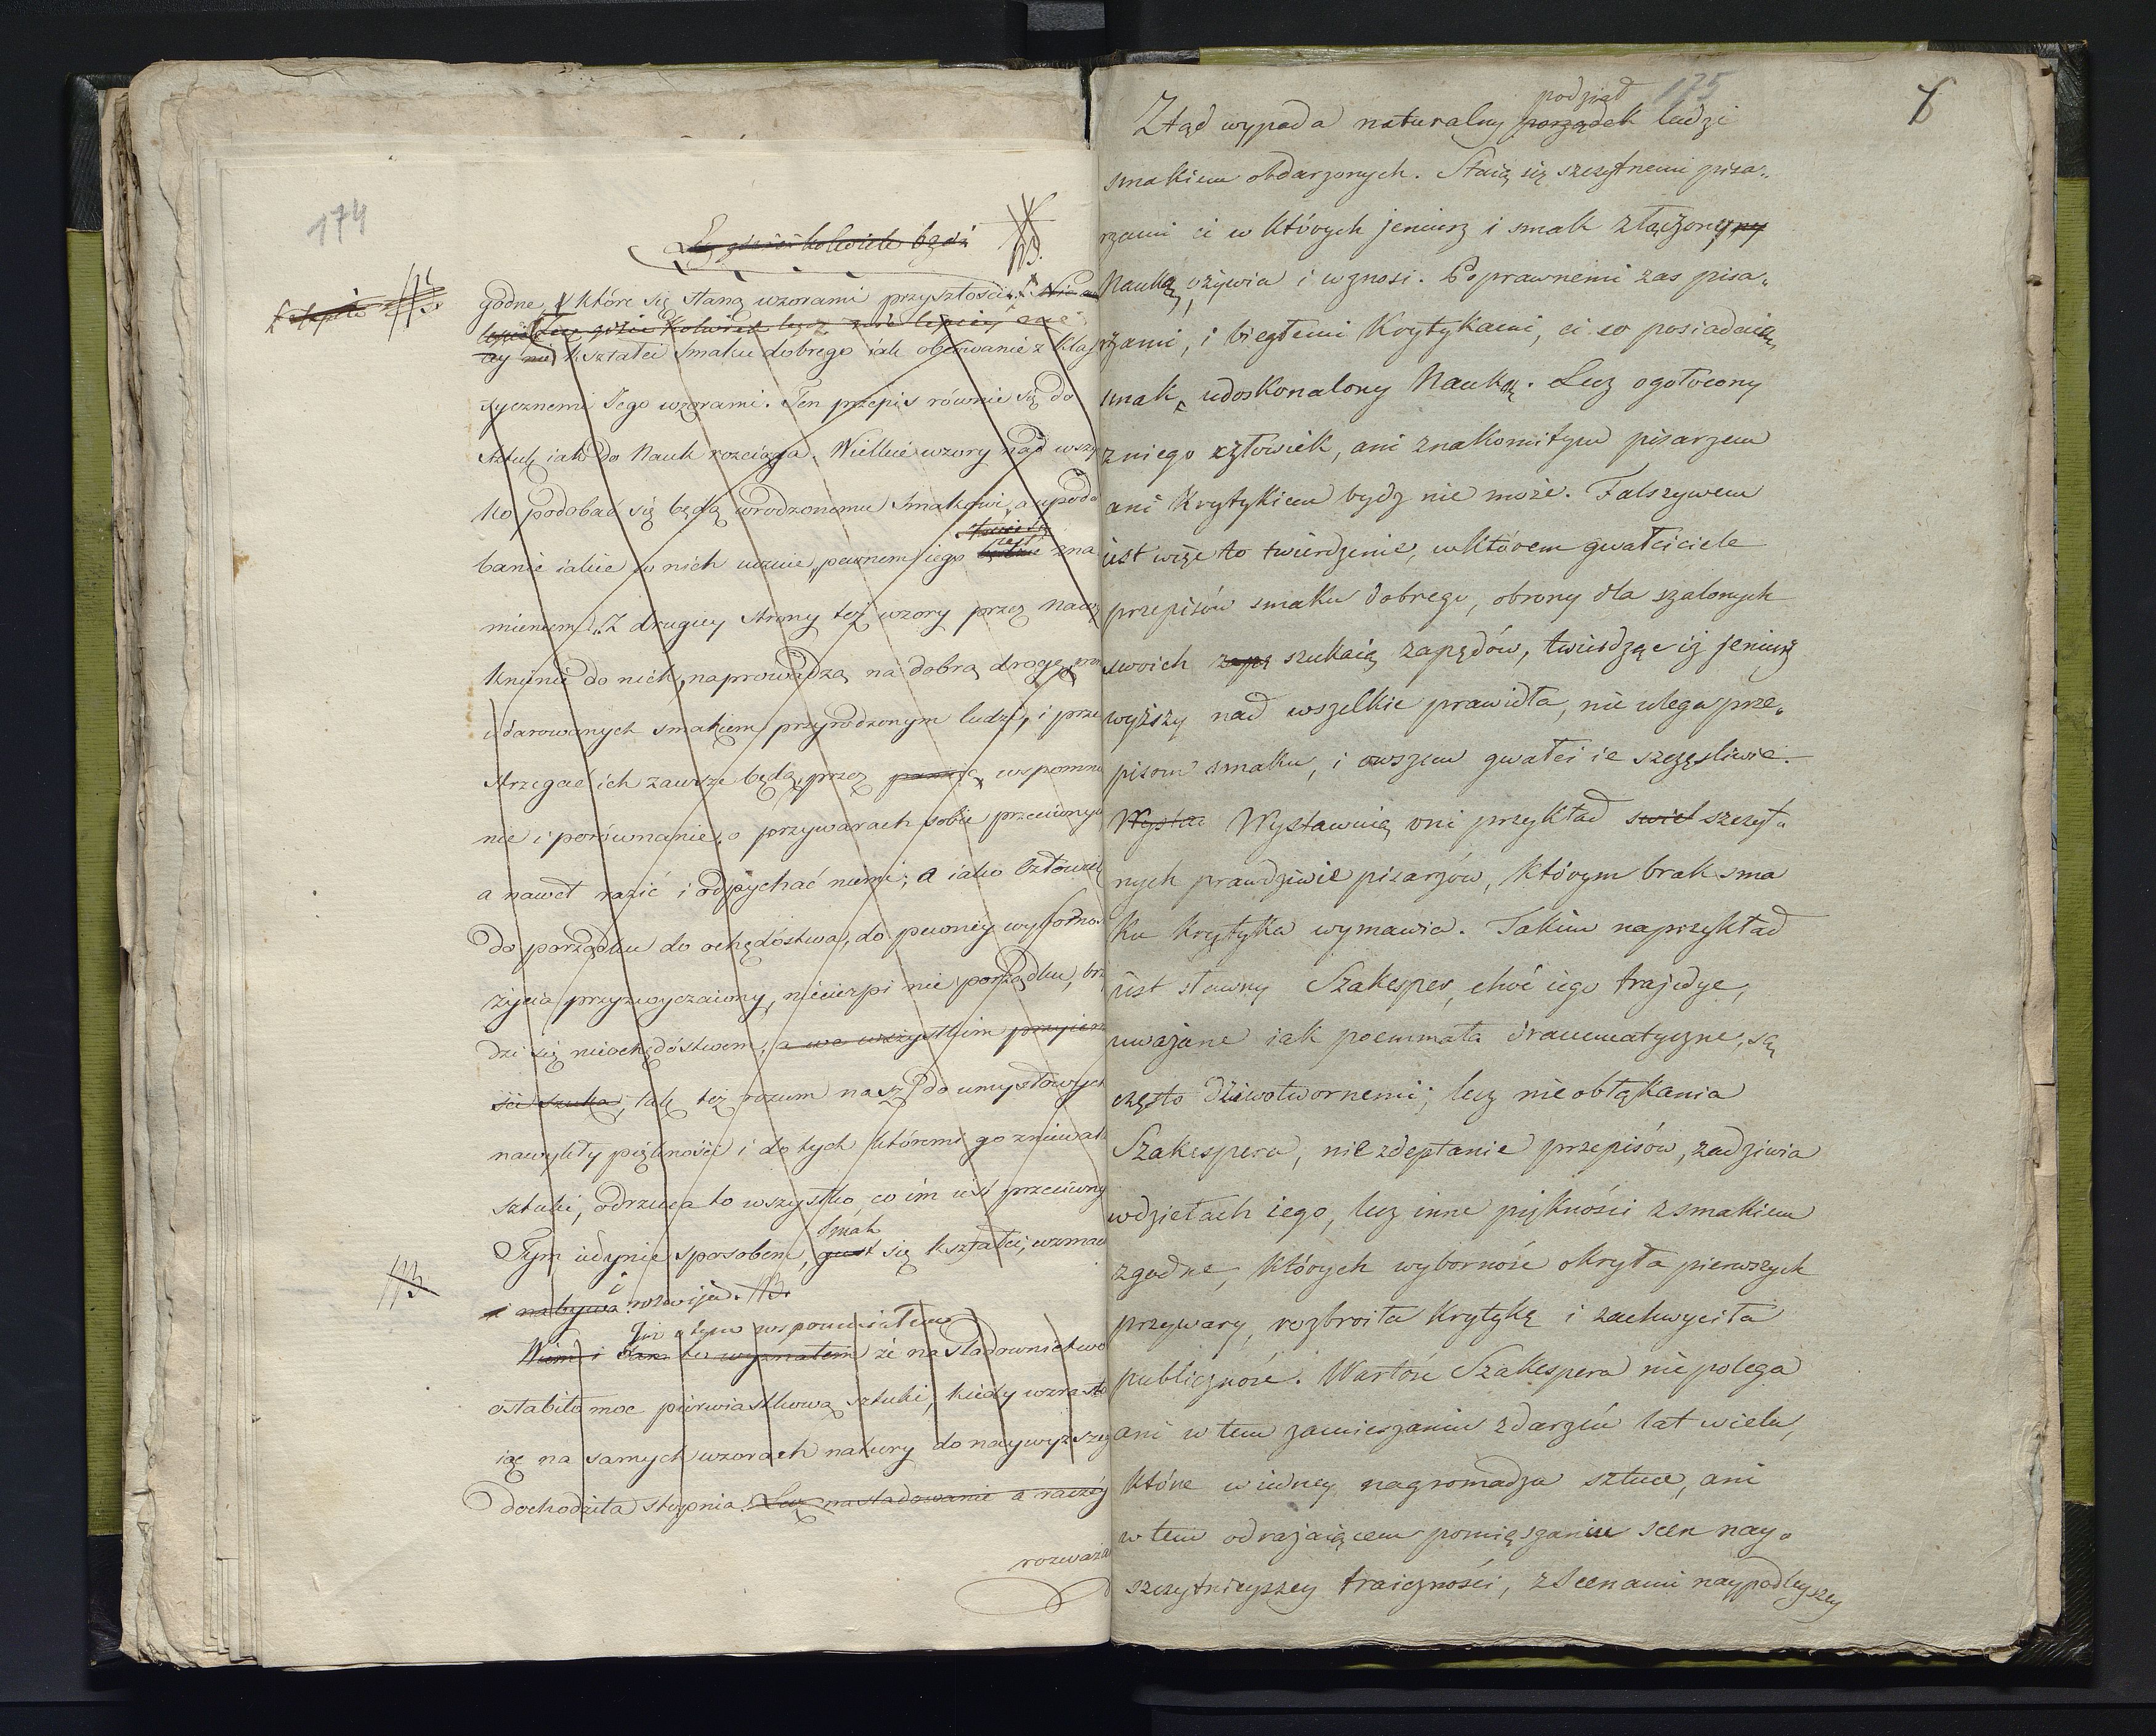 174
godne, które się staną wzorami przyszłości.
kształci smaku dobrego iak obcowanie z klas
sycznemi Jego wzorami. Ten przepis równie się do
sztuk iako do Nauk rozciąga. Wielkie wzory nad wszy
ko podobać się będą wrodzonemu smakowi, a upodo
banie iakie w nich uczuie, pewnem iego jest zna
mieniem. Z drugiey strony też wzory przez
do nich, naprowadzą na dobrą drogę
udarowanych smakiem przyrodzonym ludzi, i prze
strzegać ich zawsze będą, przez wspomnie
nie i porównanie, o przywarach sobie przeciwnych
a nawet razić i odpychać niemi; a iako Człowiek
do porządku do ochędóstwa, do pewney wyborno
życia przyzwyczaiony, niecierpi nie porządku, br
dzi się nieochędóstwem, a we wszystkim
ści szuka, tak też rozum nasz do umysłowych
nawykły piękności i do tych któremi go
sztuki, odrzuca to wszystko, co im iest przeciwny
smak
Tym iedynie sposobem, gust się kształci, wzmac
i nabywa rozwija. NB.
NB
Już o tym wspomniałem
że naśladownictwo
osłabiło moc pierwiastkową sztuki, kiedy wzrasta
iąc na samych wzorach natury do naywyższego
dochodziła stopnia. Lecz naśladowanie a raczéy
rozważa
175
podział
Ztąd wypada naturalny porządek ludzi
smakiem obdarzonych. Staią się szczytnemi pisa„
rzami ci w których jeniusz i smak złączony
Nauką, ożywia i wznosi. Poprawnemi zas pisa„
rzami, i biegłemi Krytykami, ci co posiadaią
smak, udoskonalony Nauką. Lecz ogołocony
z niego człowiek, ani znakomitym pisarzem
ani Krytykiem bydź nie może. Fałszywem
iest więc to twierdzenie, w którem gwałciciele
przepisów smaku dobrego, obrony dla szalonych
swoich zapę szukaią zapędów, twierdząc iż jeniusz
wyższy nad wszelkie prawidła, nie ulega prze„
pisom smaku, i owszem gwałci ie szczęśliwie.
Wysta Wystawuią oni przykład szczyt„
nych prawdziwie pisarzów, którym brak sma
ku krytyka wymawia. Takim naprzykład
iest sławny Szakesper, choć iego trajedye,
uważane iak poemmata drammatyczne, są
często dziwotwornemi; lecz nie obłąkania
Szakespera, nie zdeptanie przepisów, zadziwia
w dziełach iego, lecz inne piękności z smakiem
zgodne, których wyborność okryła pierwszych
przywary, rozbroiła krytykę i zachwyciła
publiczność. Wartość Szakespera nie polega
ani w tem zamieszaniu zdarzeń lat wielu,
które w iedney nagromadza sztuce, ani
w tem odrażaiącem pomięszaniu scen nay„
szczytnieyszey traiczności, z scenami naypodleyszey